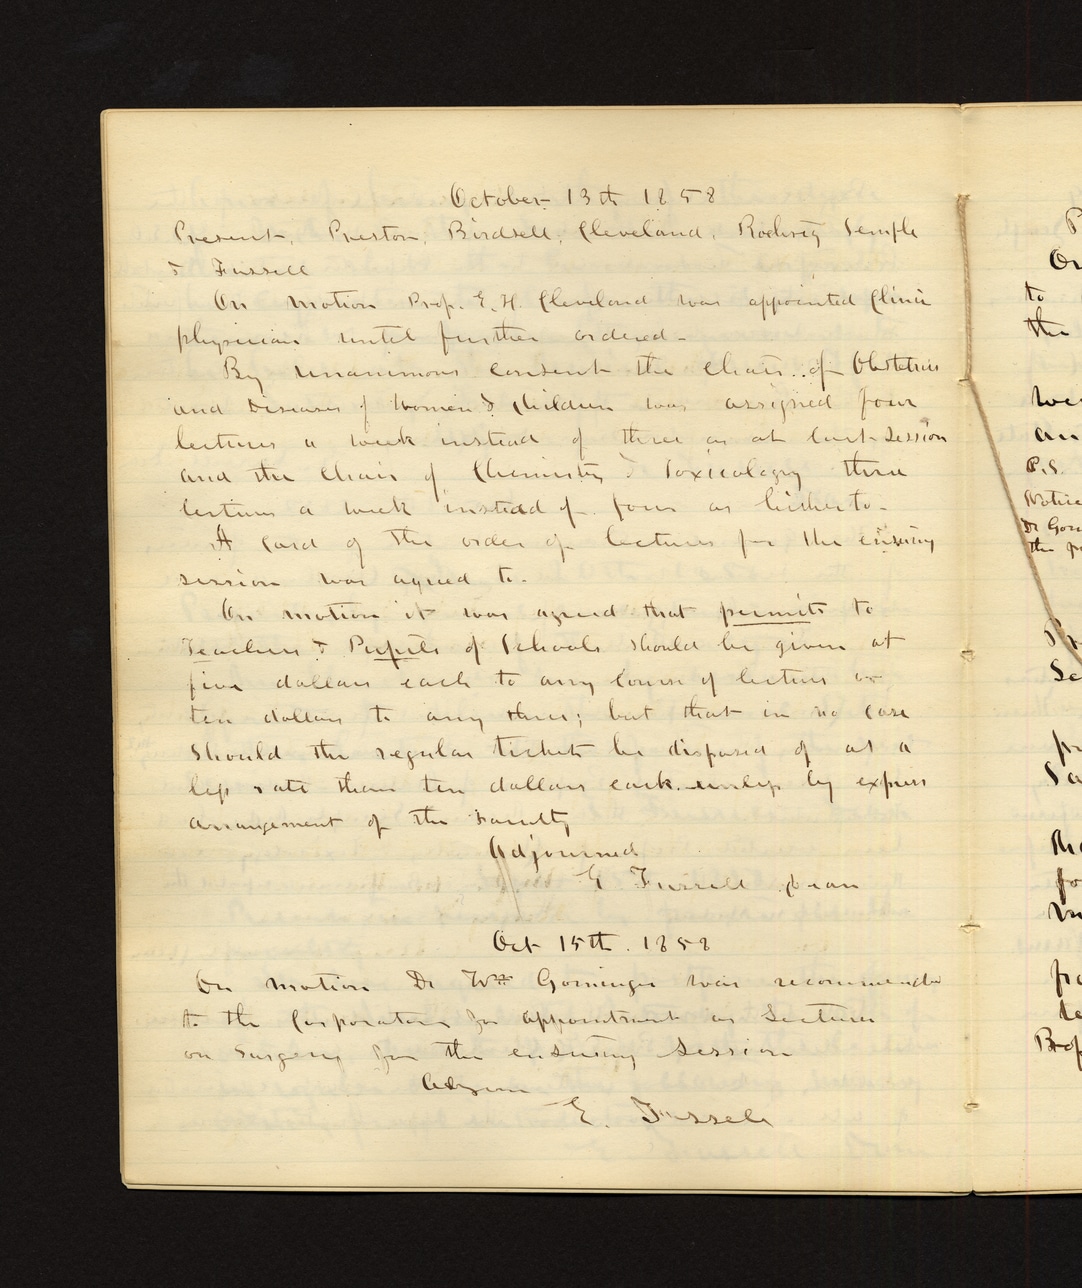 October 13th 1858
Present, Preston, Birdsell, Cleveland, Semple
& Fussell
On motion Prop. E. H. Cleveland was appointed Clinic
physician until further ordered -
By unanimous consent the Chair of Obstetrics
and Diseases of Women & Children was assigned four
lectures a week instead of three as at last Session
and the Chair of Chemistry & Toxicology three
lectures a week instead of four as hitherto -
A Card of the order of lectures for the ensuing
session was agreed to.
On motion it was agreed that permits to
Teachers & Pupils of Schools should be given at
five dollars each to any course of lectures or
ten dollars to any three; but that in no case
should the regular ticket be disposed of at a
less rate than ten dollars each unless by express
arrangement of the Faculty
Adjourned
E Fussell Dean
Oct 15th. 1858
On motion Dr Wm was recommended
to the Corporators for appointment as Lecturer
on Surgery for the ensuing Session
Adjourn
E. Fussell
P
On
to
the
we
an
P.S.
Notice
Dr
the
Se